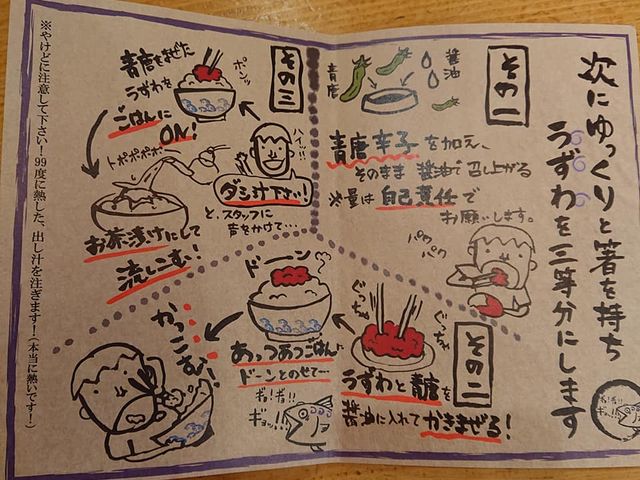 次にゆっくりと箸を持ち
うずわを三等分にします
その一
醤油
青唐
青唐辛子を加え、
そのまま醤油で召し上がる
※量は自己責任で
お願いします。
パク
パク
その二
ぐっちゃ
ぐっちゃ
うずわと青唐を
醤油に入れてかきまぜる!
ドーン
あっつあつごはんに
ドーンとのせて…
ギョ!ギョ!!
ギョッ!!
かっこむ!
その三
青唐をまぜた
うずわを
ポンッ
ごはんに
ON!
ハイッ!!
ダシ汁下さい!
と、スタッフに
声をかけて…
トポポポポ
お茶漬けにして
流しこむ!
※やけどに注意して下さい!99度に熱した、出し汁を注ぎます!(本当に熱いです!)